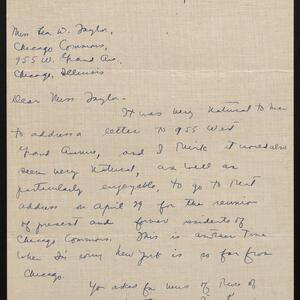 Miss Lea D. Taylor,
Chicago Commons,
955 W. Grand Ave.
Chicago, Illinois
Dear Miss Taylor -
It was very natural to me
to address a letter to 955 West
Grand Avenue, and I think it would also
seem very natural, as well as
particularly enjoyable, to go to that
address on April 29 for the reunion
of present and former residents of
Chicago Commons. This is another time
when I'm sorry New York is so far from
Chicago.
You asked for news of those of